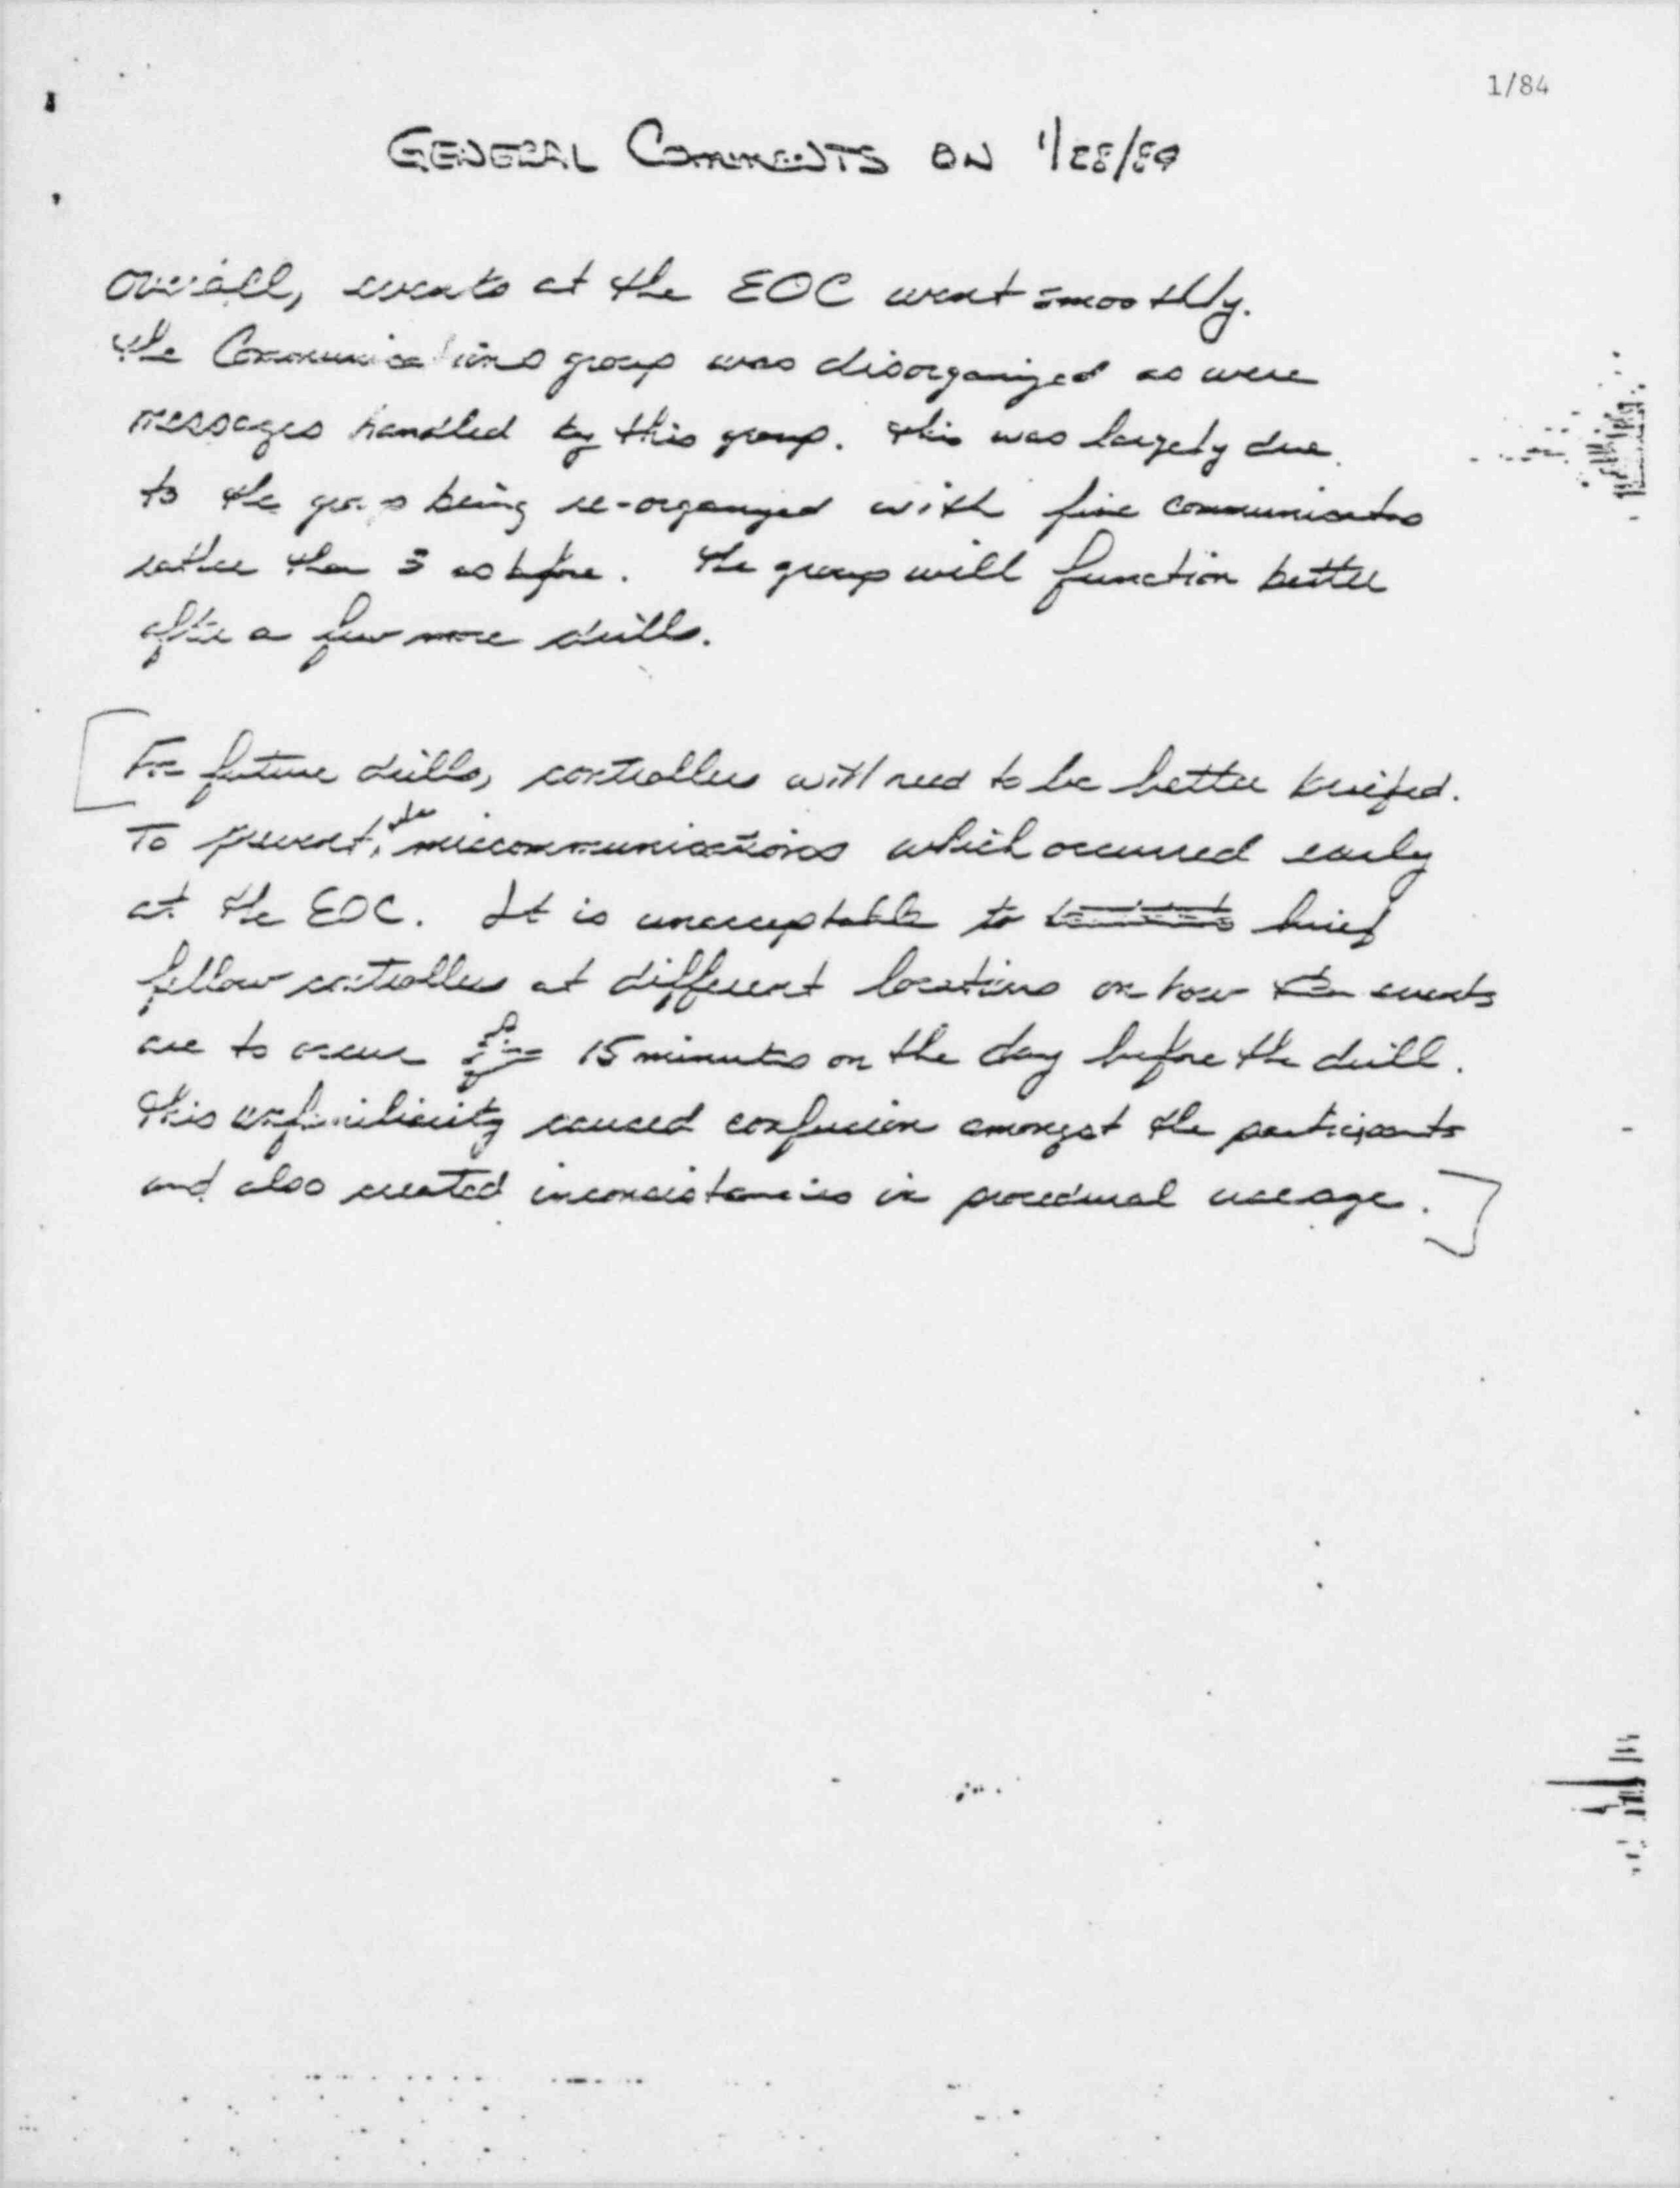 1/84
GENERAL COMMENTS ON 1/28/84
Overall, events at the EOC went smoothly.
The Communications group was disorganized as were
messages handled by this group. This was largely due
to the group being re-organized with five communicators
rather than 3 as before. The group will function better
after a few more drills.
[For future drills, controllers will need to be better briefed.
To prevent, the miscommunications which occurred early
at the EOC. It is unacceptable to brief
fellow controllers at different locations on how events
are to occur for 15 minutes on the day before the drill.
This unfamiliarity caused confusion amongst the participants
and also created inconsistancies in procedural useage.]